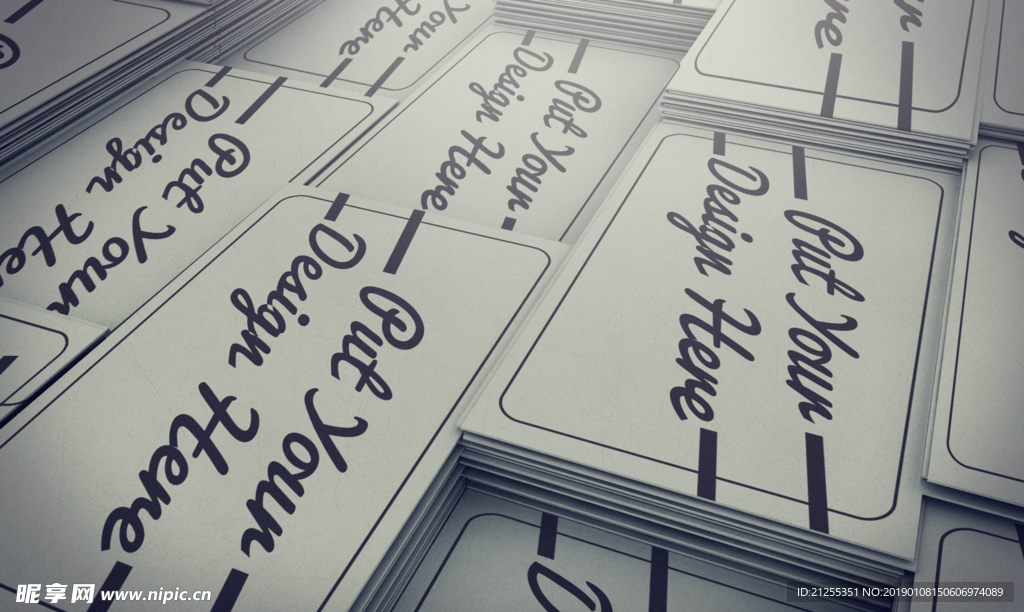 Your
Here
Put Your
Design Here
Put Your
Design Here
Put Your
Design Here
Put Your
Design Here
昵享网 www.nipic.cn
ID:21255351 NO:20190108150606974089